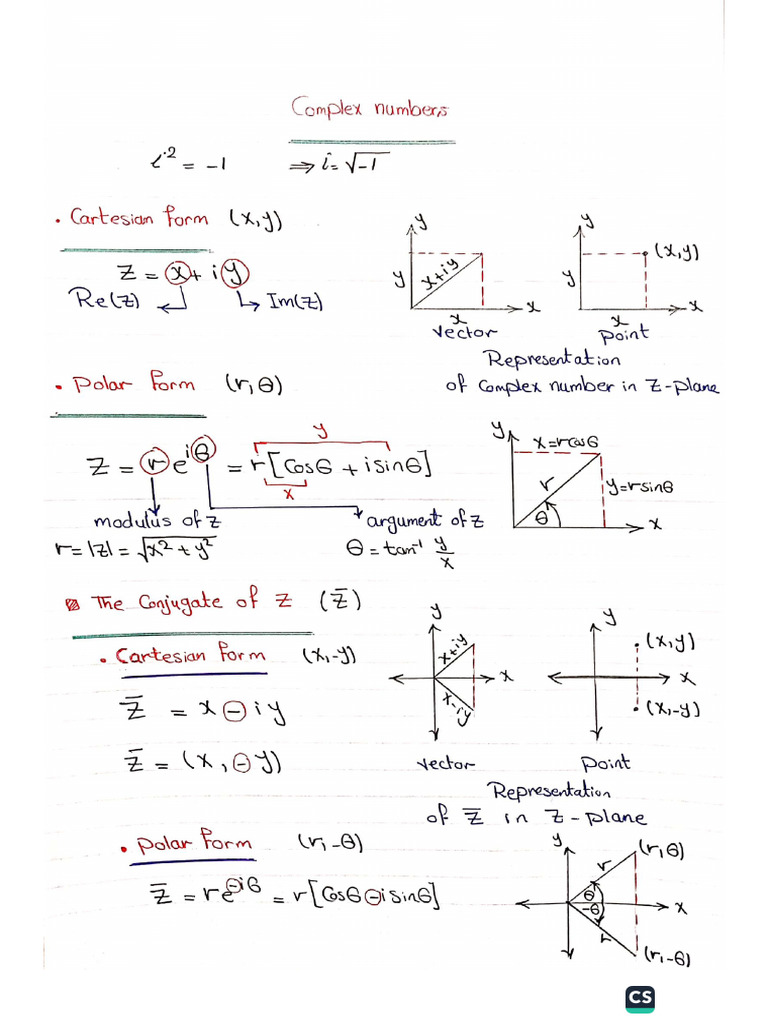 Complex numbers
i² = -1 ⇒ i = √-1
• Cartesian form (x,y)
Z = x + i y
Re(Z) ↵ ↳ Im(Z)
y
y
x+iy
x
x
vector
y
(x,y)
y
x
x
point
Representation
of complex number in Z-plane
• Polar form (r,θ)
y
Z = r e^{iθ} = r[Cosθ + i sinθ]
x
modulus of Z
argument of Z
r = |Z| = √x² + y²
θ = tan⁻¹ y/x
y
x = r cosθ
r
y = r sinθ
θ
x
The Conjugate of Z (Z̄)
• Cartesian form (x,-y)
Z̄ = x - i y
Z̄ = (x, -y)
y
x+iy
x
x-iy
vector
y
(x,y)
x
(x,-y)
point
Representation
of Z̄ in Z-plane
• Polar form (r,-θ)
Z̄ = r e^{-iθ} = r[Cosθ - i sinθ]
y
(r,θ)
r
θ
-θ
x
r
(r,-θ)
CS